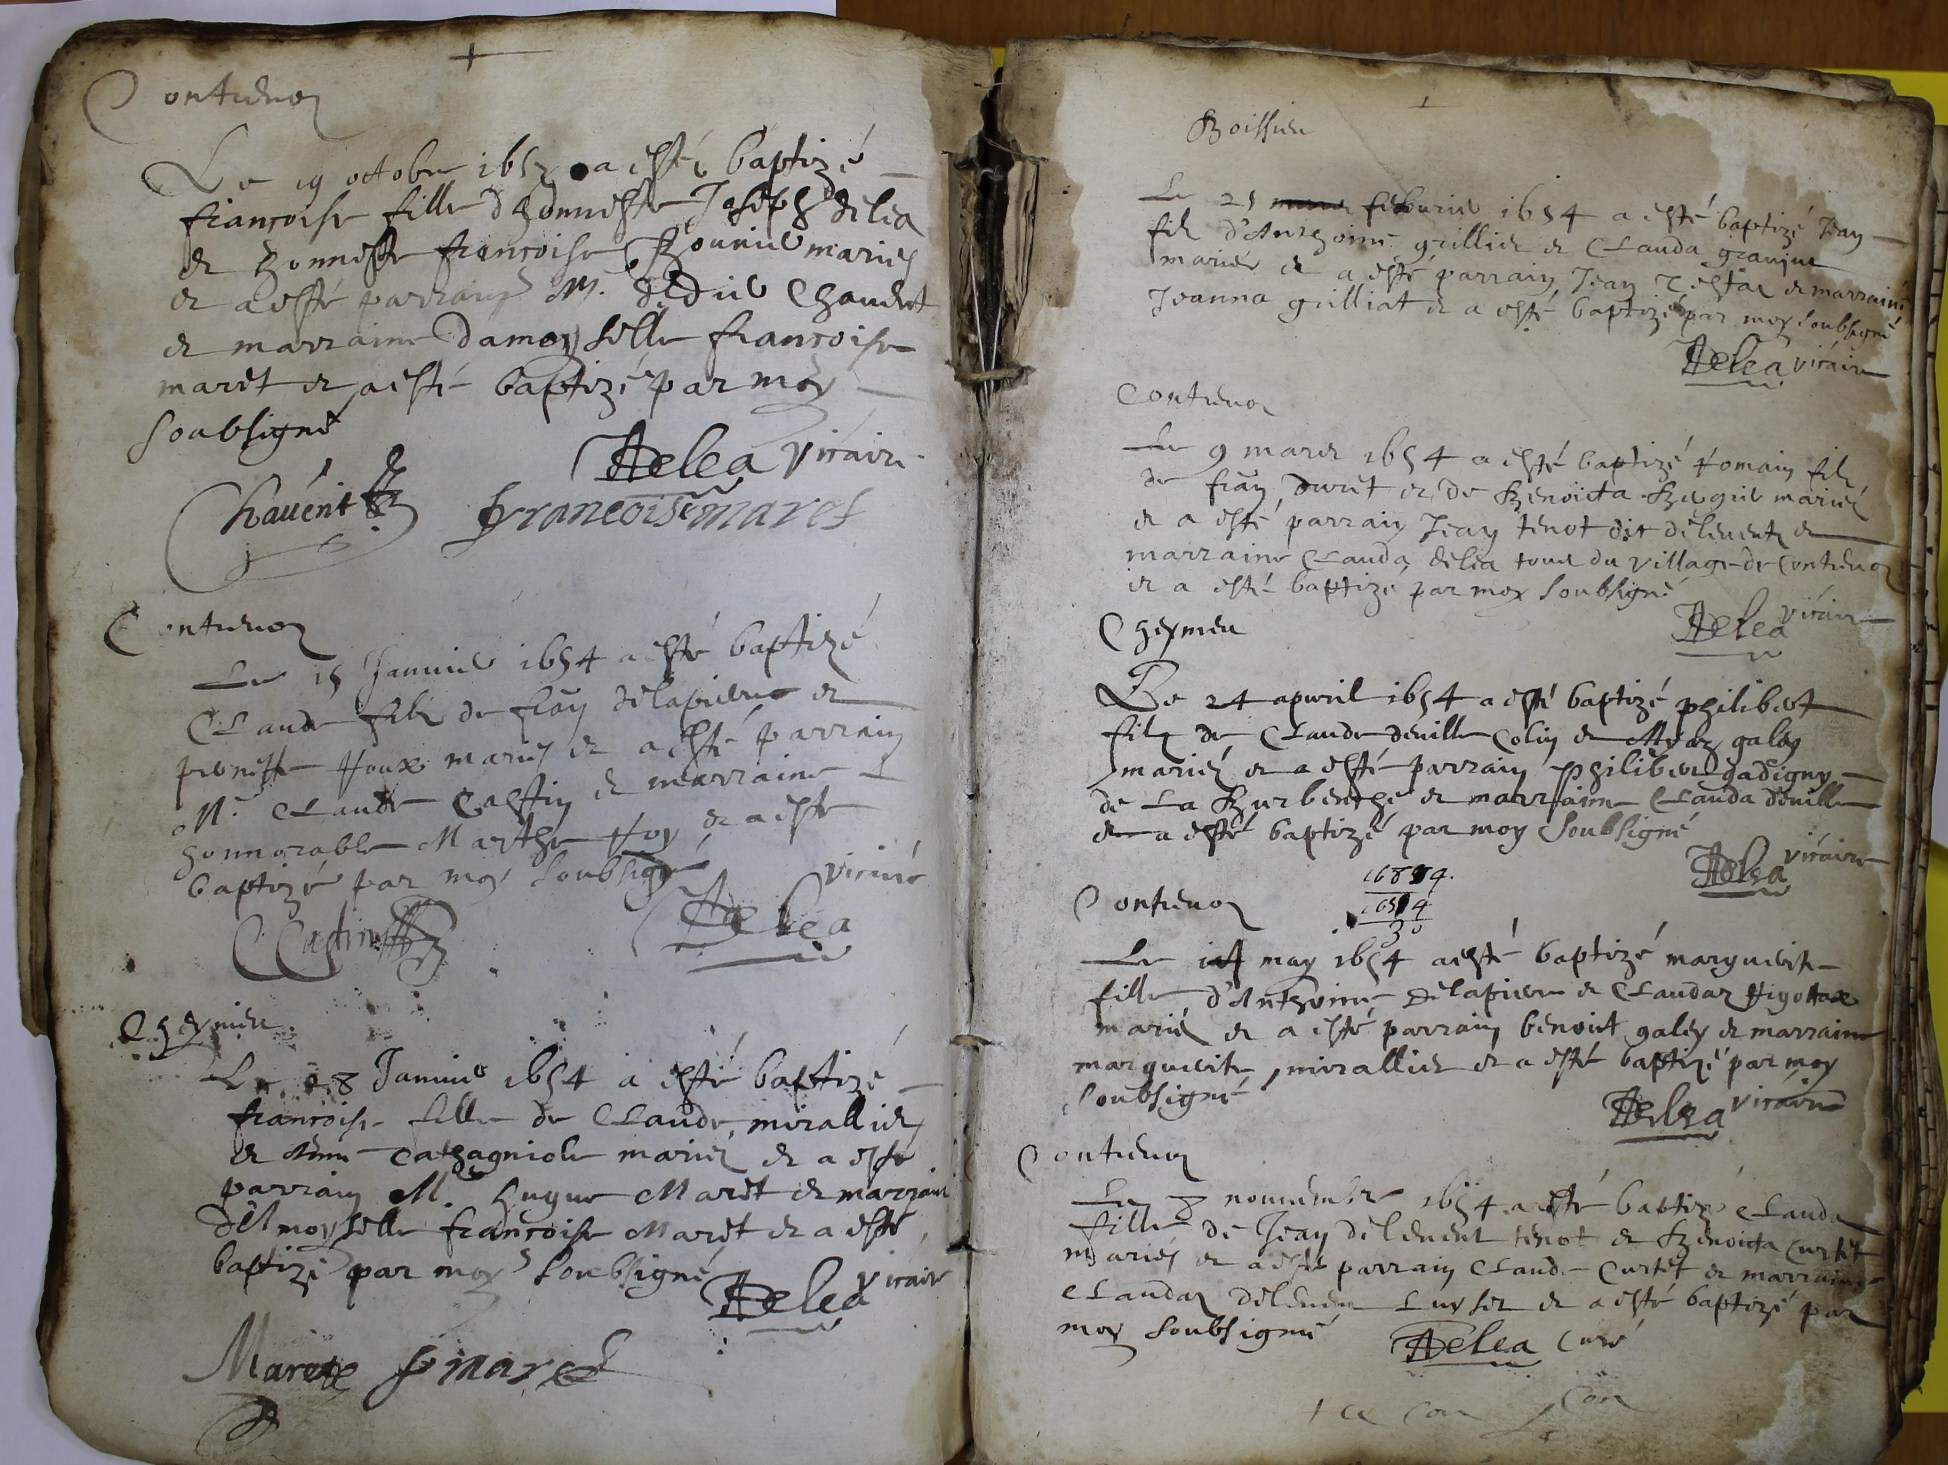 Contrevoz
Le 19 octobre 1653 a esté baptizé
françoise fille d'honneste Joseph delea
et honneste françoise Bouvier mariés
et a esté parrain Mr. Chauvet
et marraine Damoyselle françoise
maret et a esté baptizé par moy
soubsigné
Delea vicaire
Chavent francoise maret
Contrevoz
Le 15 Janvier 1654 a esté baptizé
Claude filz de frãy delapierre et
pernette Roux mariés et a esté parrain
Mr. Claude Castin et marraine
honnorable Marthe Roy et a este
baptizé par moy soubsigné vicaire
CCastin Delea
Cheymieu
Le 28 Janvier 1654 a esté baptizé
françoise fille de Claude mirallier
et Anne Cathagniole mariés et a este
parrain Mr. hugue Maret et marraine
Damoyselle françoise Maret et a esté
baptizé par moy soubsigné
Delea vicaire
Maret f maret
Boissieu
Le 25 febvrier 1654 a esté baptizé Jean
filz d'Anthoine grillier et Clauda
mariés et a esté parrain Jean et marraine
Jeanna grilliat et a esté baptizé par moy soubsigné
Delea vicaire
Contrevoz
Le 9 mars 1654 a esté baptizé Romain filz
de frãy duret et de Benoicta mariés
et a esté parrain Jean tenot dit delevent et
marraine Clauda delea tous du village de Contrevoz
et a esté baptizé par moy soubsigné
Delea vicaire
Cheymieu
Le 24 apvril 1654 a esté baptizé philibert
filz de Claude deville Colin et galey
mariés et a esté parrain philibert gadigny
de La Burbenche et marraine Clauda deville
et a esté baptizé par moy soubsigné
Delea vicaire
16884.
1654
30
Contrevoz
Le 14 may 1654 a esté baptizé marguerite
fille d'Anthoine delapierre et Claudaz Rigottaz
mariés et a esté parrain benoict galey et marraine
marguerite mirallier et a esté baptizé par moy
soubsigné
Delea vicaire
Contrevoz
Le 8 novembre 1654 a esté baptizé Clauda
fille de Jean delevent tenot et Benoicta Curtet
mariés et a esté parrain Claude Curtet et marraine
Claudaz delevent et a esté baptizé par
moy soubsigné Delea Curé